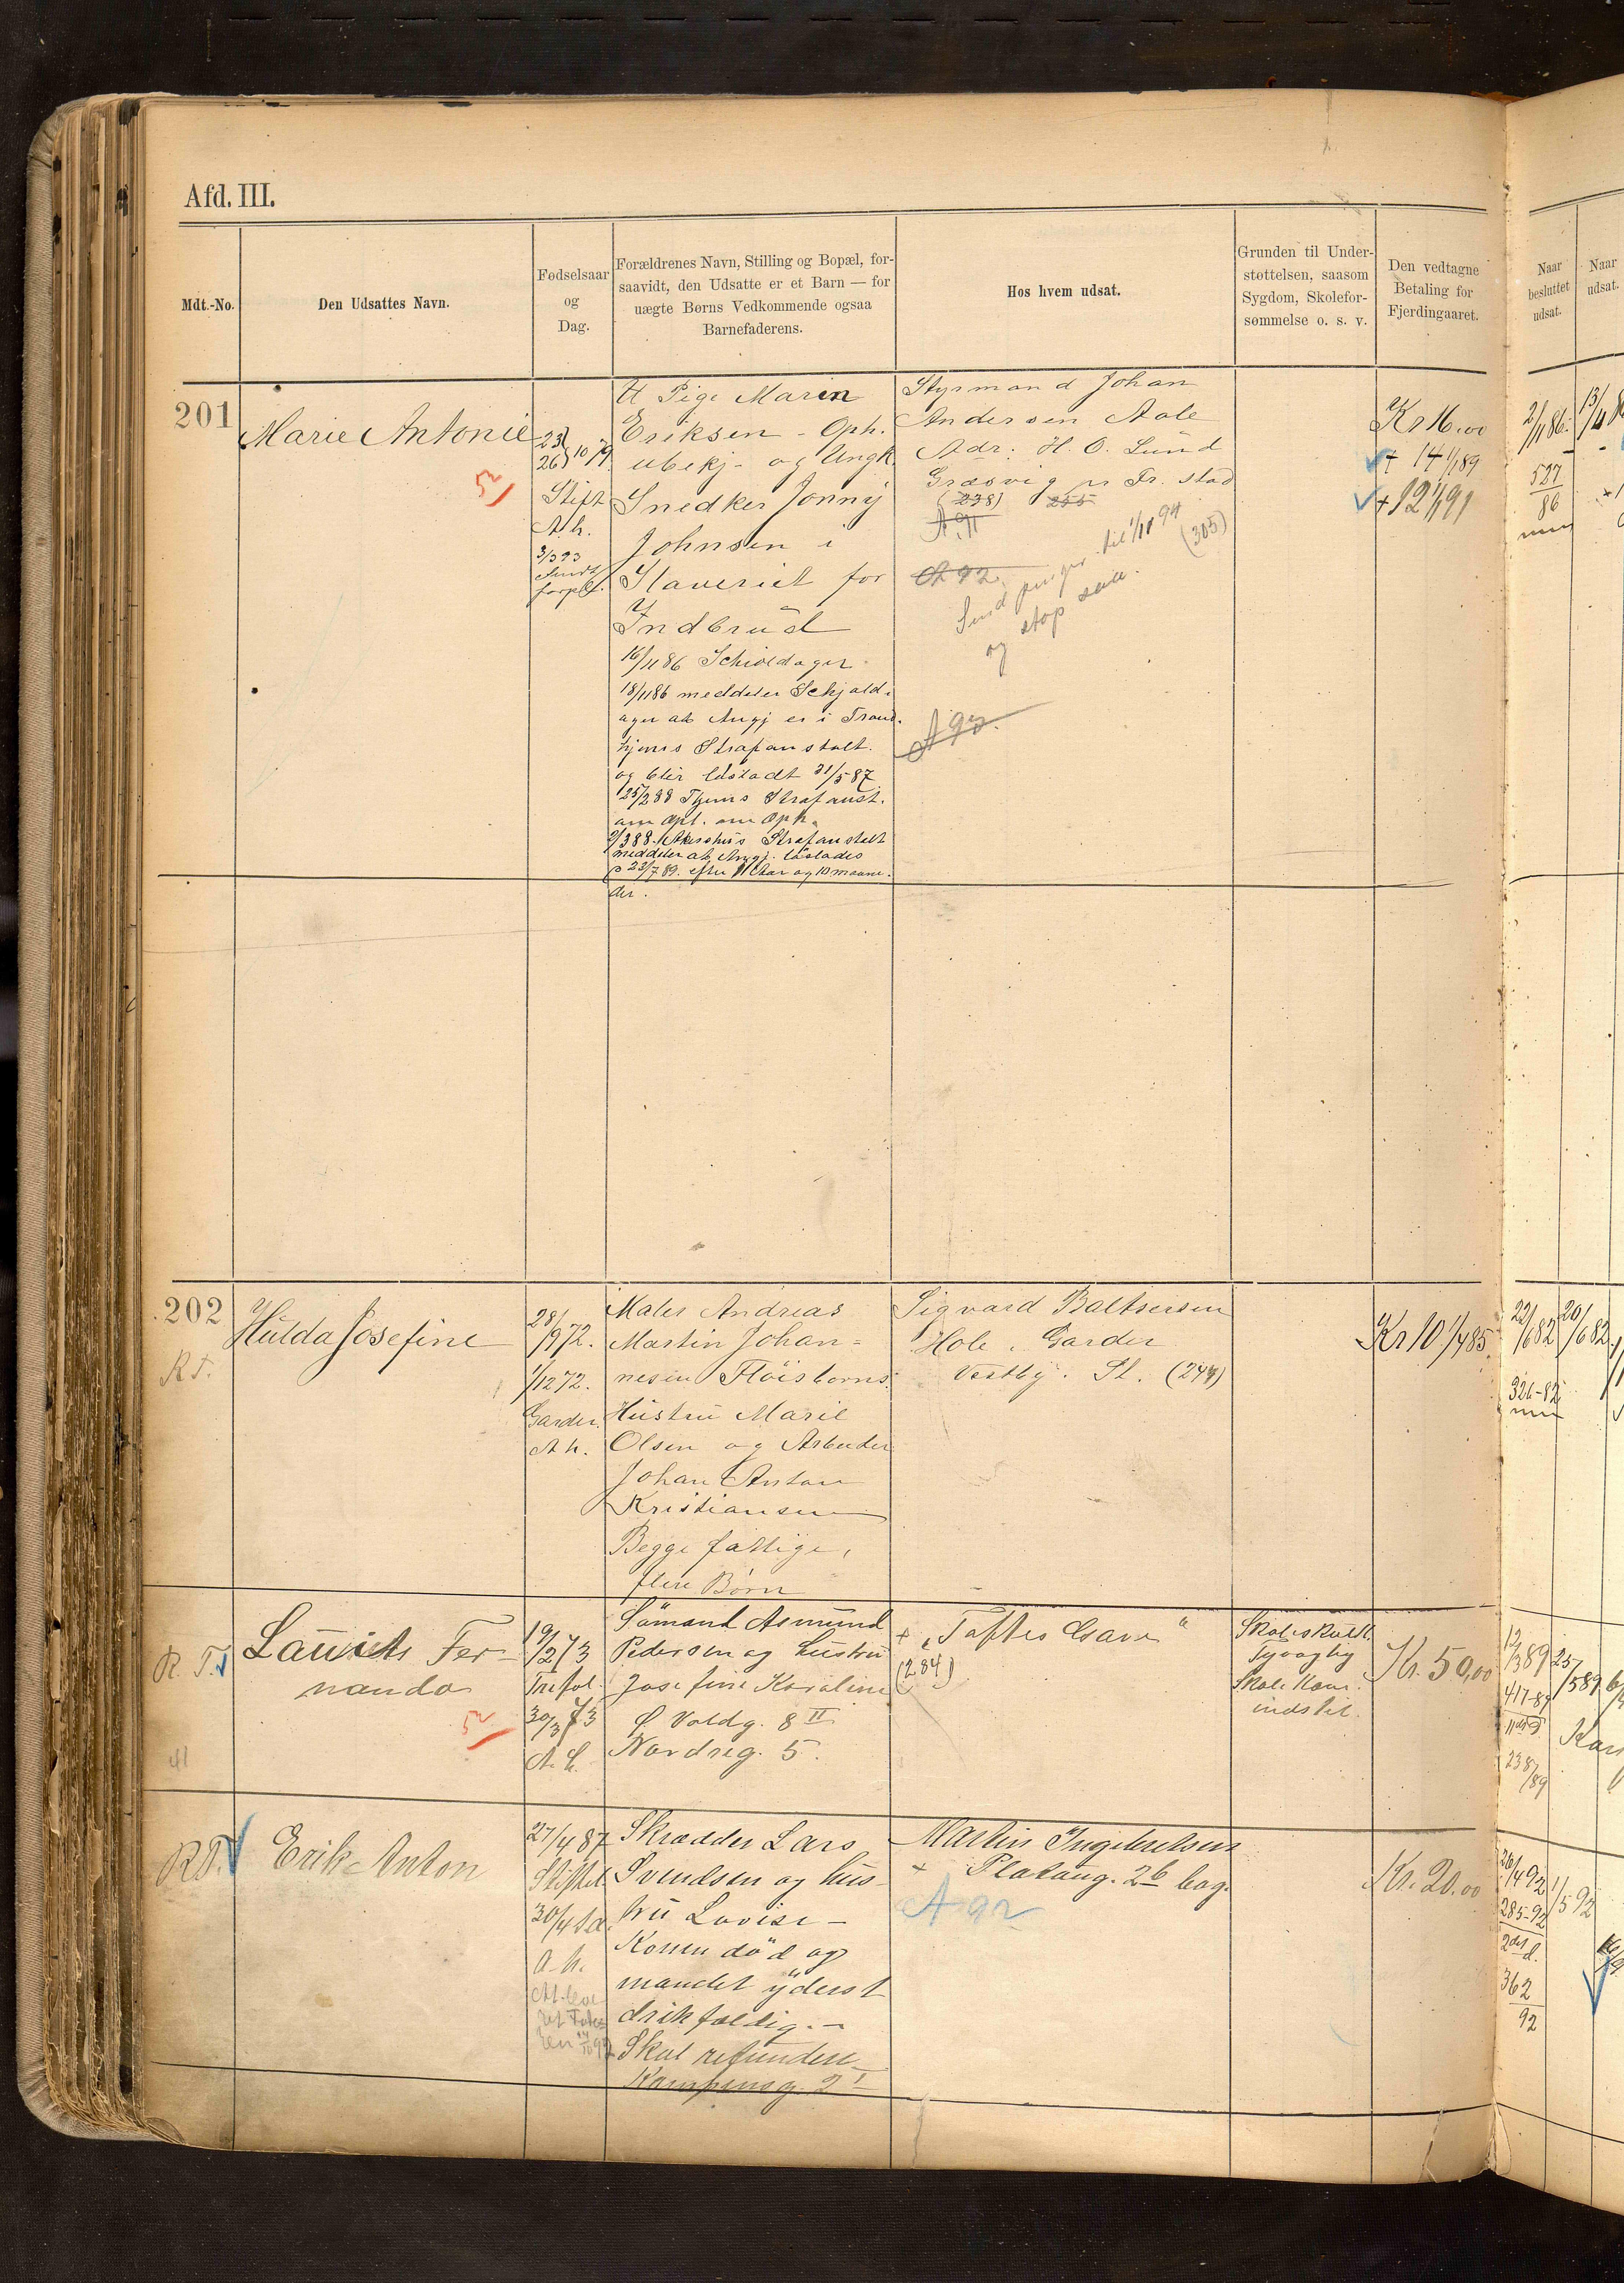 Afd. III.
Mdt.-No.
Den Udsattes Navn.
Fødselsaar
og
Dag.
Forældrenes Navn, Stilling og Bopæl, for-
saavidt, den Udsatte er et Barn — for
uægte Børns Vedkommende ogsaa
Barnefaderens.
Hos hvem udsat.
Grunden til Under-
støttelsen, saasom
Sygdom, Skolefor-
sømmelse o. s. v.
Den vedtagne
Betaling for
Fjerdingaaret.
Naar
besluttet
udsat.
Naar
udsat.
201
Marie Antonie
23/
26/10 79
Stift
A.h.
3/3 93
forpl.
U Pige Maren
Eriksen - Oph.
ubekj - og Ungk.
Snedker Jonny
Johnsen i
Slaveriet for
Indbrud
16/11 86 Schioldager
18/11 86 meddeler Schjold-
ager at Angj er i Trond-
hjems Strafanstalt.
og blir løsladt 31/5 87
25/2 88 Thjems Strafanst.
om Opl. om Oph.
2/3 88. Akershus Strafanstalt
meddeler at Angj. løslades
p 23/7 89. efter 1 Aar og 10 maane-
der.
Styrmand Johan
Andersen Aale
Adr: H. O. Lund
Græsvig pr Fr. stad
(238) 255
A 91
A 92
Send penger til 1/11 94
og stop saa.
(305)
A 93.
Kr 16,00
+ 14 1/1 89
+ 12 1/1 91
2/11 86.
527
86
202
R T.
Hulda Josefine
28/
/9 72.
1/12 72.
Garder.
A h.
Maler Andreas
Martin Johan-
nesen Fløisborns
Hustru Marie
Olsen og Arbeider
Johan Anton
Kristiansen
Begge fattige,
flere Børn
Sigvard Baltsersen
Hole, Garder
Vestby. St. (244)
Kr 10 1/4 85.
22/6 82
20/6 82
326-82
R. T.
41
Lauritz Fer-
nando
19/2 73
Trefol.
30/3 73
A. h.
Sömand Asmund
Pedersen og hustru
Josefine Karoline
Ø. Voldg. 8 II
Nordreg. 5.
+ "Toftes Gave"
(284)
Skoleskulk.
Tyvagtig
Skole Kom.
indstil.
Kr. 50,00
12/3 89
25/5 89
417-89
238/89
R T.
Erik Anton
27/4 87
Stiftet
30/4 s.a.
a. h.
Skrædder Lars
Svendsen og hus-
tru Lovise -
Konen död og
mandet yderst
drikfældig. -
Skal refundere
Kampensg. 2 I
Martin Ingebretsen
+ Platoug. 2 b bag.
A 92
Kr. 20.00
20/4 92
1/5 92
285-92
2det d.
362
92